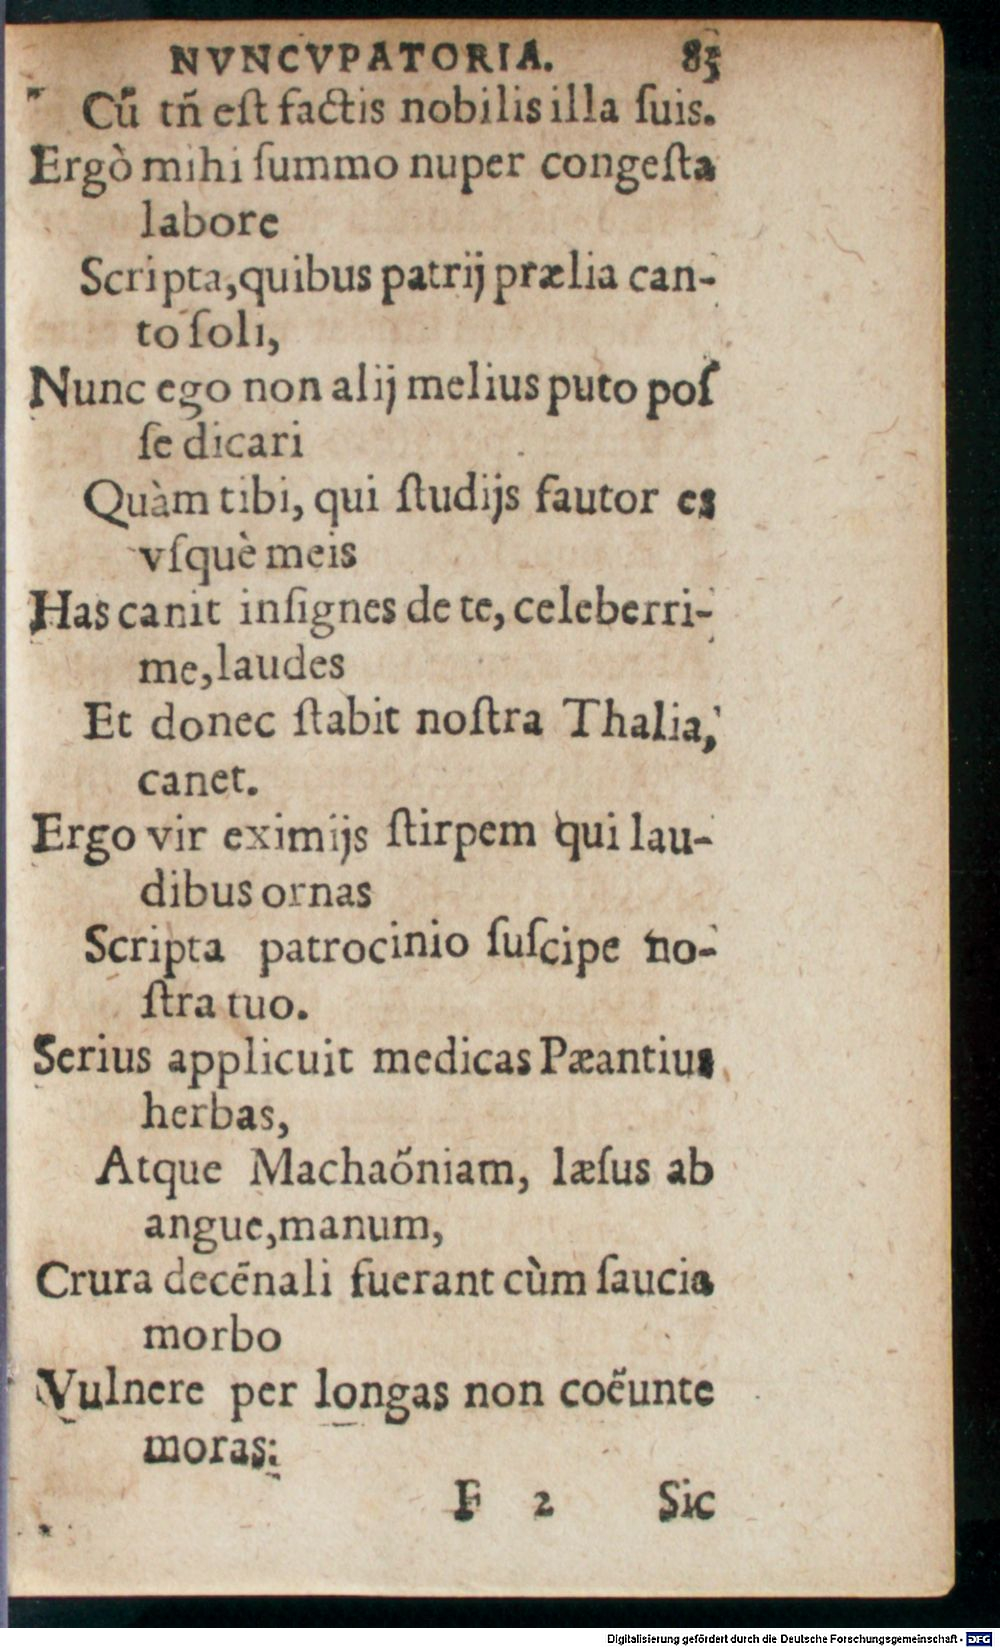 NVNCVPATORIA. 83
Cũ tñ eſt factis nobilis illa ſuis.
Ergò mihi ſummo nuper congeſta
labore
Scripta, quibus patrij prælia can-
to ſoli,
Nunc ego non alij melius puto poſ
ſe dicari
Quàm tibi, qui ſtudijs fautor es
vſquè meis
Has canit inſignes de te, celeberri-
me, laudes
Et donec ſtabit noſtra Thalia,
canet.
Ergo vir eximijs ſtirpem qui lau-
dibus ornas
Scripta patrocinio ſuſcipe no-
ſtra tuo.
Serius applicuit medicas Pæantius
herbas,
Atque Machaöniam, læſus ab
angue, manum,
Crura decẽnali fuerant cùm ſaucia
morbo
Vulnere per longas non coëunte
moras:
F 2 Sic
Digitalisierung gefördert durch die Deutsche Forschungsgemeinschaft - DFG